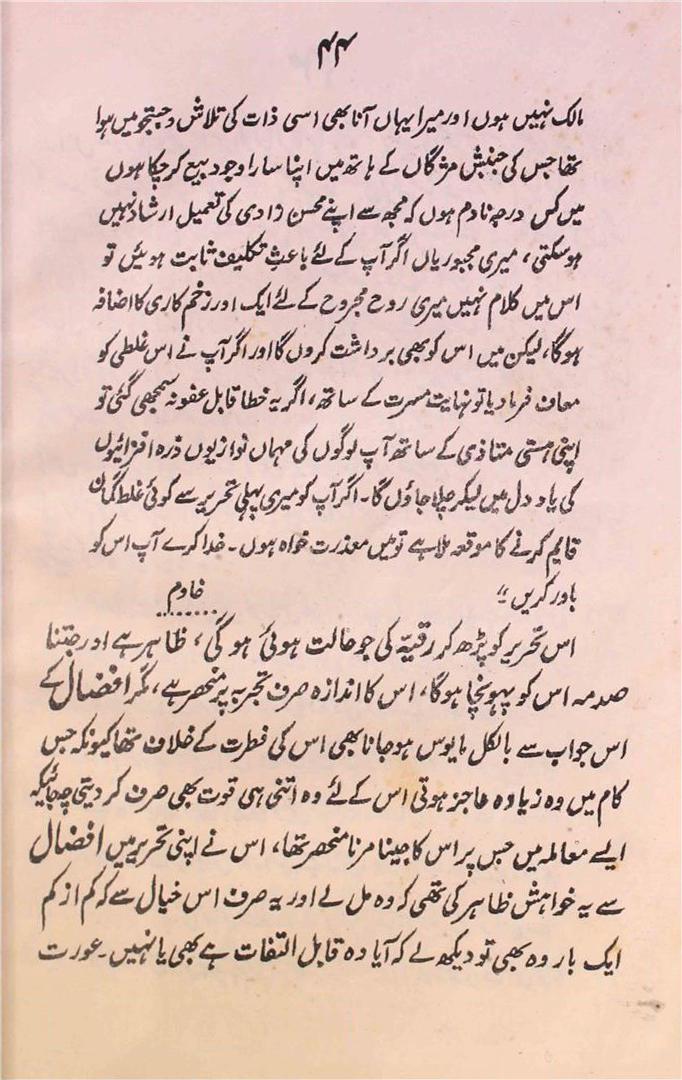 ۴۴
مالک نہیں ہوں اور میرا یہاں آنا بھی اسی ذات کی تلاش و جستجو میں ہوا
تھا جس کی جنبش مژگاں کے ہاتھ میں اپنا سارا وجود بیع کر چکا ہوں
میں کس درجہ نادم ہوں کہ مجھ سے اپنے محسن زادی کی تعمیل ارشاد نہیں
ہوسکتی، میری مجبوریاں اگر آپ کے لئے باعثِ تکلیف ثابت ہوئیں تو
اس میں کلام نہیں میری روح مجروح کے لئے ایک اور زخم کاری کا اضافہ
ہوگا، لیکن میں اس کو بھی برداشت کروں گا اور اگر آپ نے اس غلطی کو
معاف فرمادیا تو نہایت مسرت کے ساتھ، اگر یہ خطا قابل عفو نہ سمجھی گئی تو
اپنی ہستی متاذی کے ساتھ آپ لوگوں کی مہماں نوازیوں ذرہ افزائیوں
کی یاد دل میں لیکر چلا جاؤں گا۔ اگر آپ کو میری پہلی تحریر سے کوئی غلط گمان
قایم کرنے کا موقعہ ملا ہے تو میں معذرت خواہ ہوں۔ خدا کرے آپ اس کو
باور کریں"
خادم
.......
اس تحریر کو پڑھ کر رقیّہ کی جو حالت ہوئی ہوگی، ظاہر ہے اور جتنا
صدمہ اس کو پہونچا ہوگا، اس کا اندازہ صرف تجربہ پر منحصر ہے، مگر افضال کے
اس جواب سے بالکل مایوس ہو جانا بھی اس کی فطرت کے خلاف تھا کیونکہ جس
کام میں وہ زیادہ عاجز ہوتی اس کے لئے وہ اتنی ہی قوت بھی صرف کر دیتی چہ جائیکہ
ایسے معاملہ میں جس پر اس کا جینا مرنا منحصر تھا، اس نے اپنی تحریر میں افضال
سے یہ خواہش ظاہر کی تھی کہ وہ مل لے اور یہ صرف اس خیال سے کہ کم از کم
ایک بار وہ بھی تو دیکھ لے کہ آیا وہ قابل التفات ہے بھی یا نہیں۔ عورت